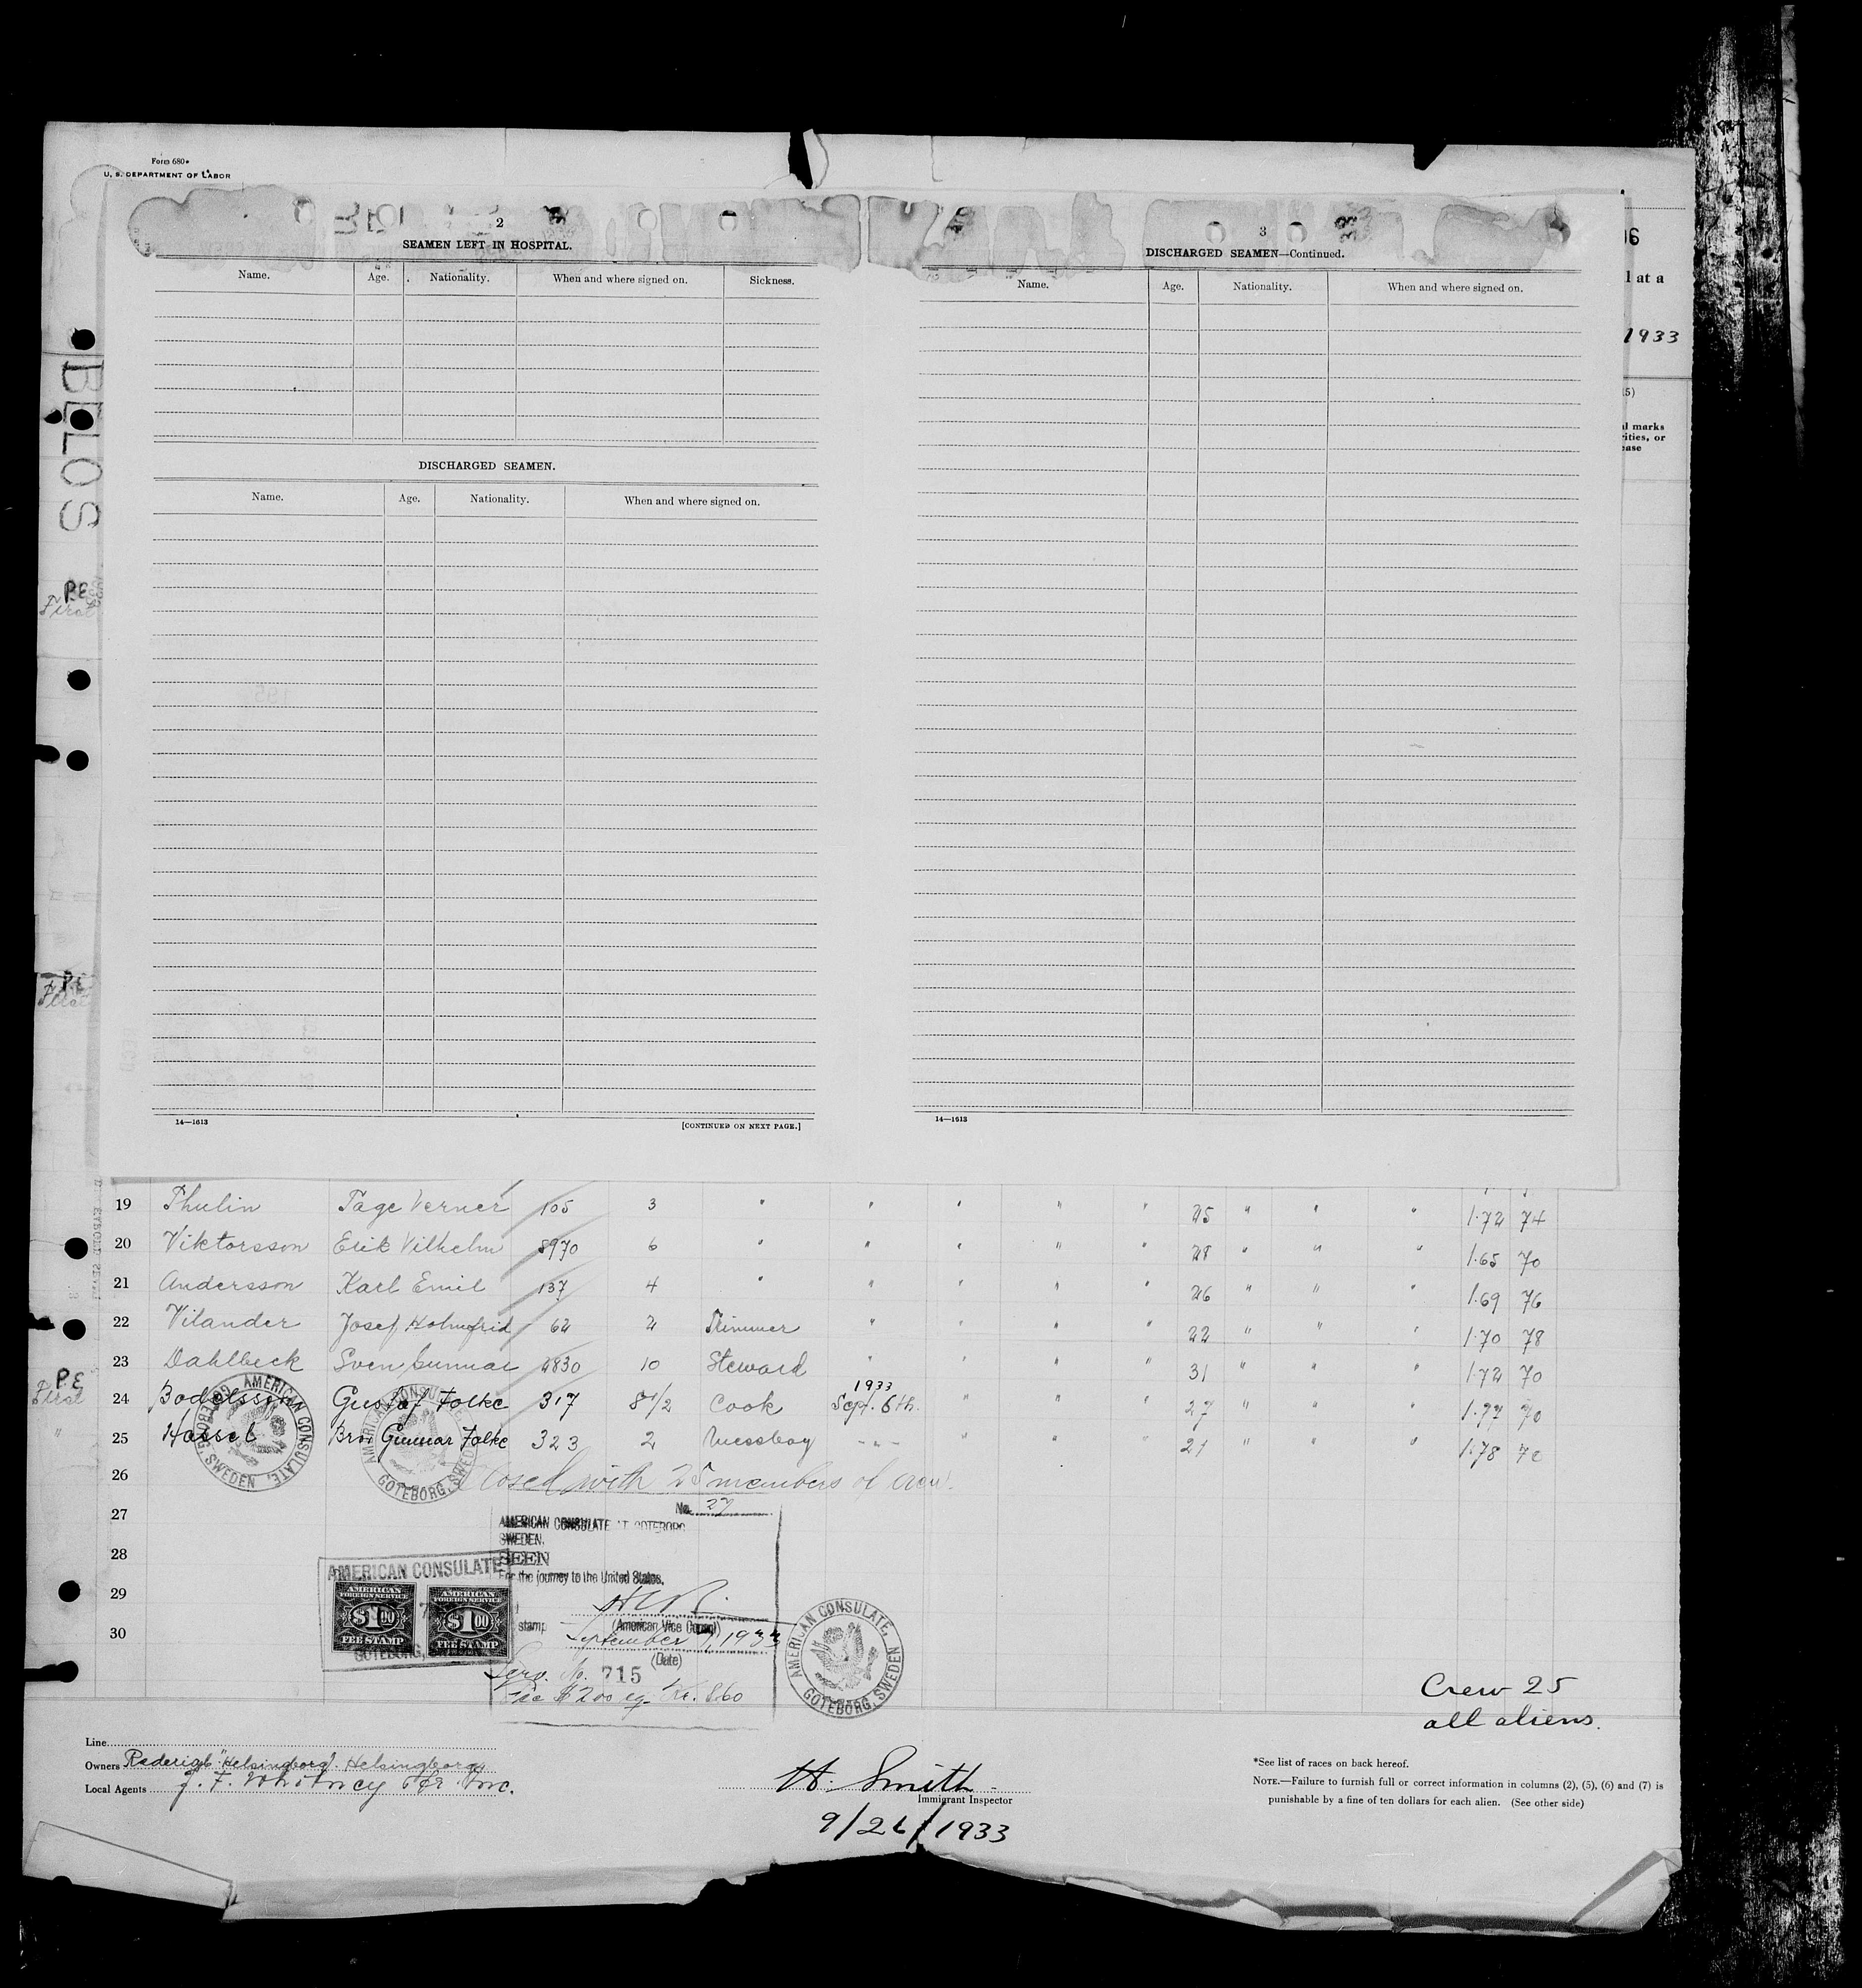 Form 680
U. S. DEPARTMENT OF LABOR
2
SEAMEN LEFT IN HOSPITAL.
Name. Age. Nationality. When and where signed on. Sickness.
DISCHARGED SEAMEN.
Name. Age. Nationality. When and where signed on.
14—1613 [CONTINUED ON NEXT PAGE.]
3
DISCHARGED SEAMEN—Continued.
Name. Age. Nationality. When and where signed on.
14—1613
l at a
1933
l marks
BELOS
P.E.
First
P.E.
First
19 Thulin Tage Verner 105 3 " " " " " 25 " " " 1.72 74
20 Viktorsson Erik Vilhelm 8970 6 " " " " " 28 " " " 1.65 70
21 Andersson Karl Emil 137 4 " " " " " 26 " " " 1.69 76
22 Vilander Josef Holmfrid 62 2 Trimmer " " " " 22 " " " 1.70 78
23 Dahlbeck Sven Gunnar 4830 10 Steward " " " " 31 " " " 1.72 70
P.E.
First
1933
24 Bodelsson Gustaf Folke 317 8 1/2 Cook Sept. 6th. " " " 27 " " " 1.77 70
25 Hassel Bror Gunnar Folke 323 2 Messboy -"- " " " 21 " " " 1.78 70
26 Closed with 25 members of crew.
27
28
29
30
AMERICAN CONSULATE, GOTEBORG, SWEDEN
AMERICAN CONSULATE, GOTEBORG, SWEDEN
No. 27
AMERICAN CONSULATE AT GOTEBORG
SWEDEN.
SEEN
For the journey to the United States.
stamp (American Vice Consul)
September 7, 1933
(Date)
Serv. No. 715
Fee $2.00 eq. Kr. 8.60
AMERICAN CONSULATE
AMERICAN FOREIGN SERVICE $1.00 FEE STAMP
AMERICAN FOREIGN SERVICE $1.00 FEE STAMP
GOTEBORG, SWEDEN
AMERICAN CONSULATE, GOTEBORG, SWEDEN
Crew 25
all aliens.
Line
Owners Rederi "Helsingborg". Helsingborg
Local Agents J. F. Whitney & Co. Inc.
H. Smith
Immigrant Inspector
9/26/1933
*See list of races on back hereof.
NOTE.—Failure to furnish full or correct information in columns (2), (5), (6) and (7) is
punishable by a fine of ten dollars for each alien. (See other side)